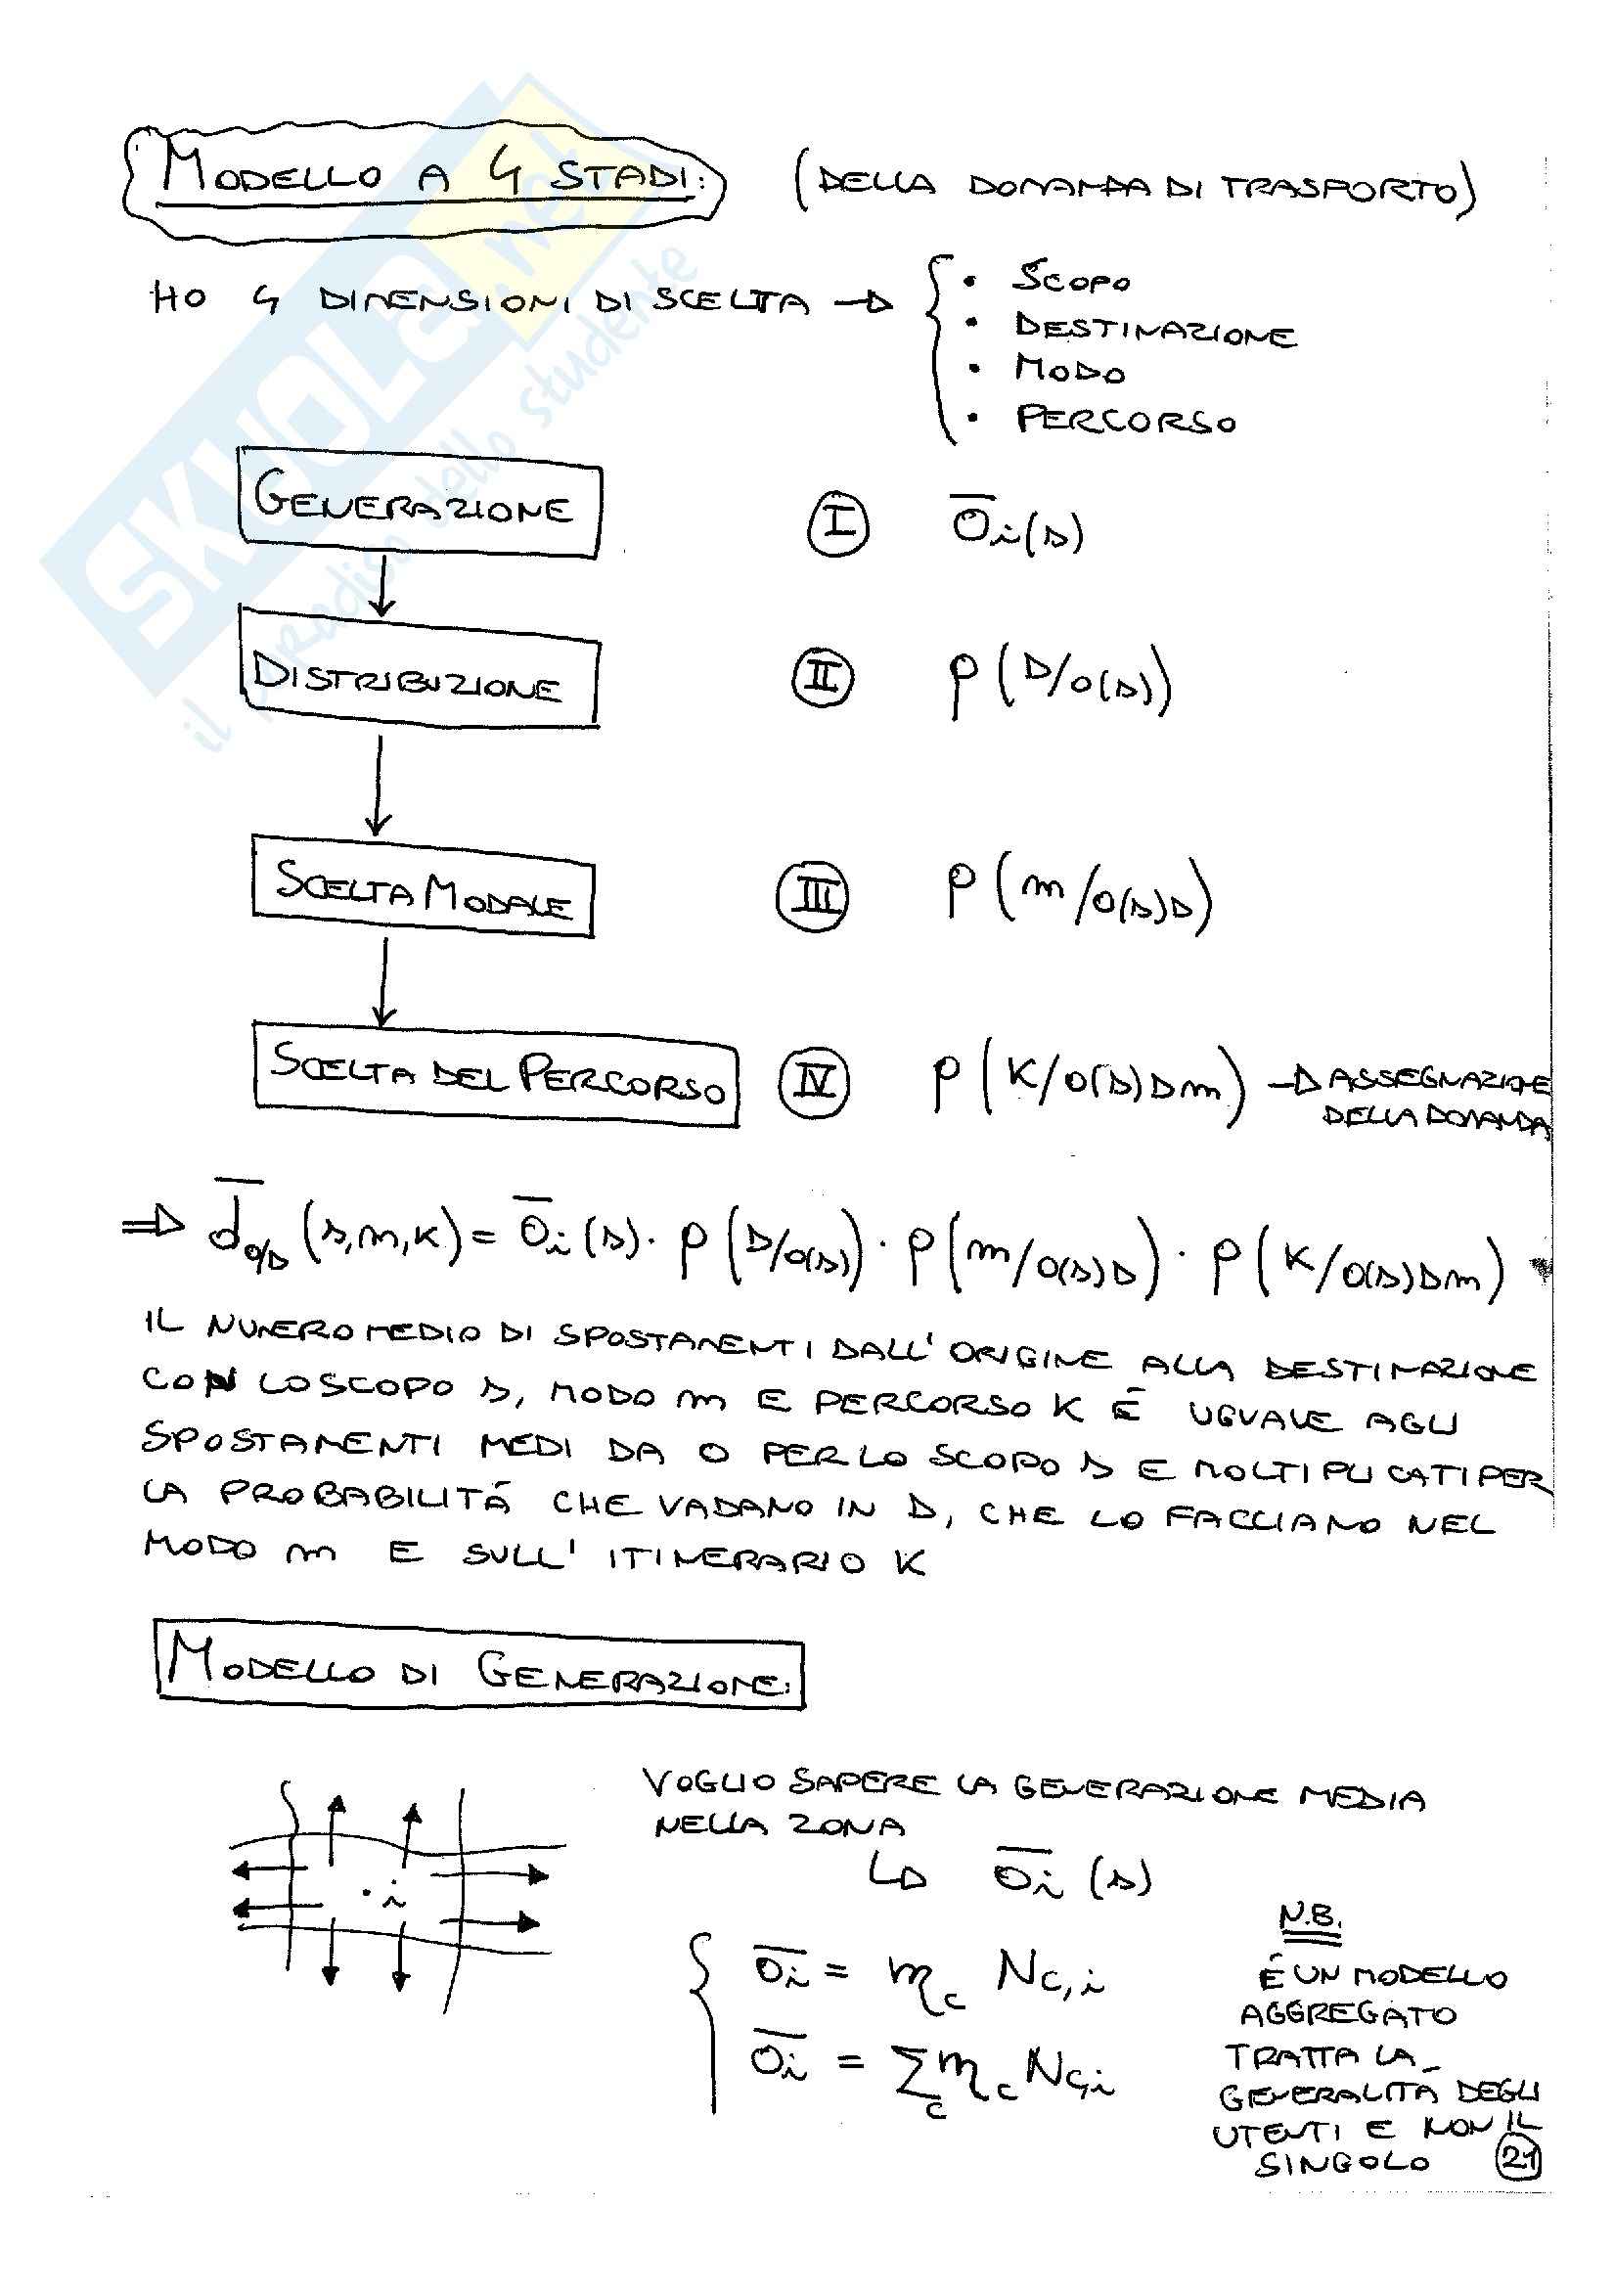 MODELLO A 4 STADI: (DELLA DOMANDA DI TRASPORTO)
HO 4 DIMENSIONI DI SCELTA → { • SCOPO
• DESTINAZIONE
• MODO
• PERCORSO
GENERAZIONE I o̅i(s)
DISTRIBUZIONE II p(D/O(s))
SCELTA MODALE III p(m/O(s)D)
SCELTA DEL PERCORSO IV p(K/O(s)Dm) → ASSEGNAZIONE
DELLA DOMANDA
⇒ d̅O/D (s,m,K) = o̅i(s) · p(D/O(s)) · p(m/O(s)D) · p(K/O(s)Dm)
IL NUMERO MEDIO DI SPOSTAMENTI DALL'ORIGINE ALLA DESTINAZIONE
CON LO SCOPO s, MODO m E PERCORSO K É UGUALE AGLI
SPOSTAMENTI MEDI DA O PER LO SCOPO s E MOLTIPLICATI PER
LA PROBABILITÁ CHE VADANO IN D, CHE LO FACCIANO NEL
MODO m E SULL'ITINERARIO K
MODELLO DI GENERAZIONE:
VOGLIO SAPERE LA GENERAZIONE MEDIA
NELLA ZONA
↳ o̅i (s)
• i
{ o̅i = mc Nc,i
o̅i = Σc mc Nc,i
N.B.
É UN MODELLO
AGGREGATO
TRATTA LA
GENERALITÁ DEGLI
UTENTI E NON IL
SINGOLO
21
SKUOLA.net
il paradiso dello studente